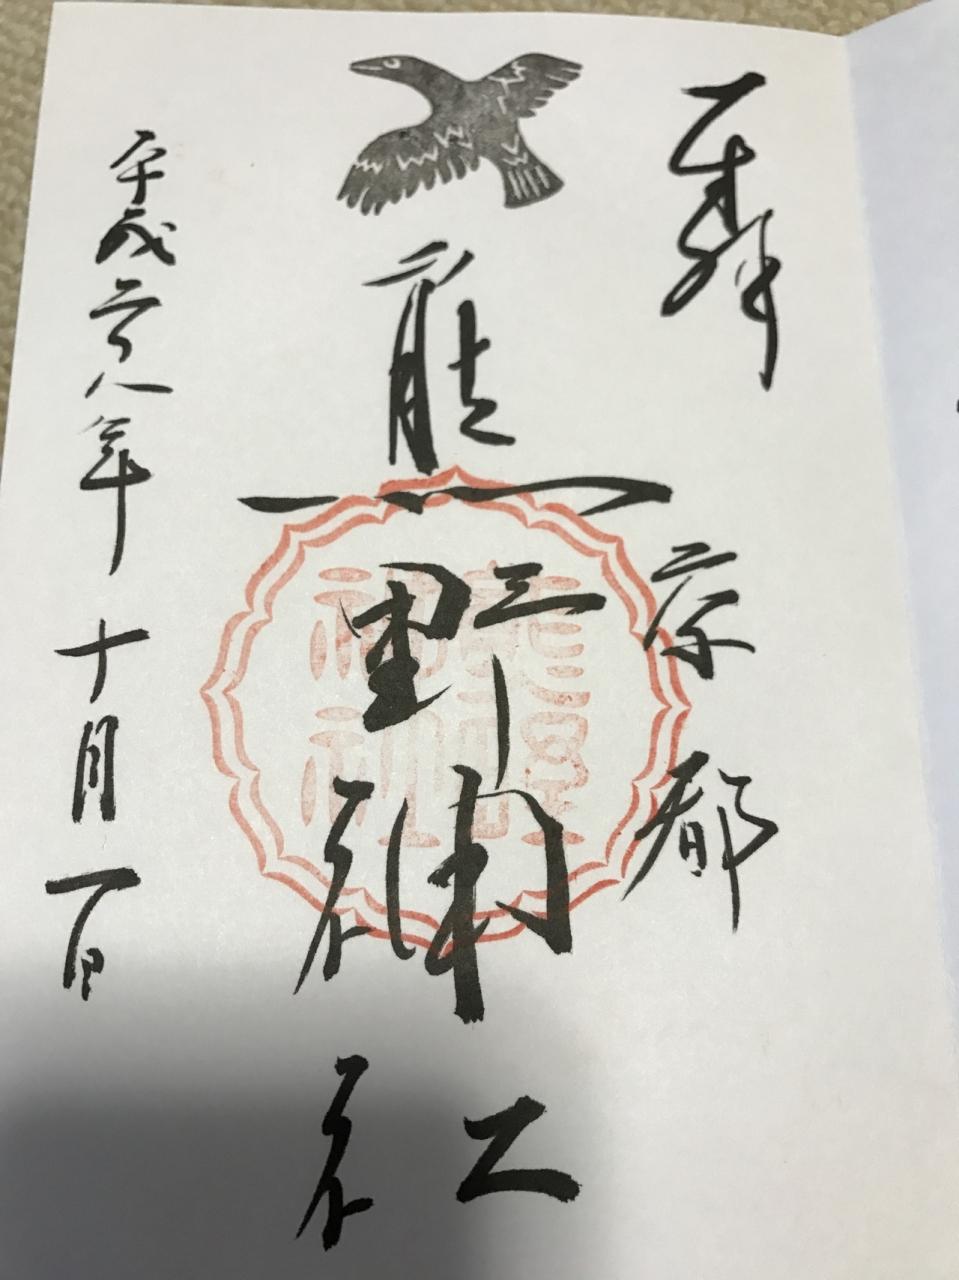 奉拝
京都
熊野神社
平成二十八年十月一日